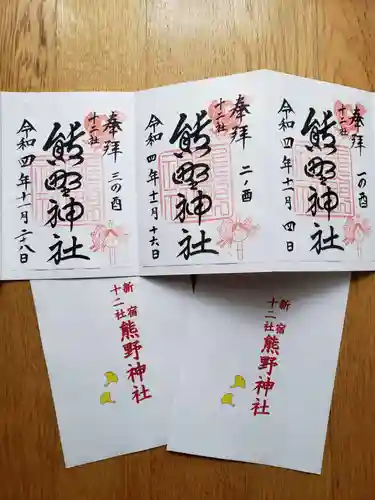 奉拝
一の酉
十二社
熊野神社
令和四年十一月四日
奉拝
二ノ酉
十二社
熊野神社
令和四年十一月十六日
奉拝
三の酉
十二社
熊野神社
令和四年十一月二十八日
新宿
十二社
熊野神社
新宿
十二社
熊野神社